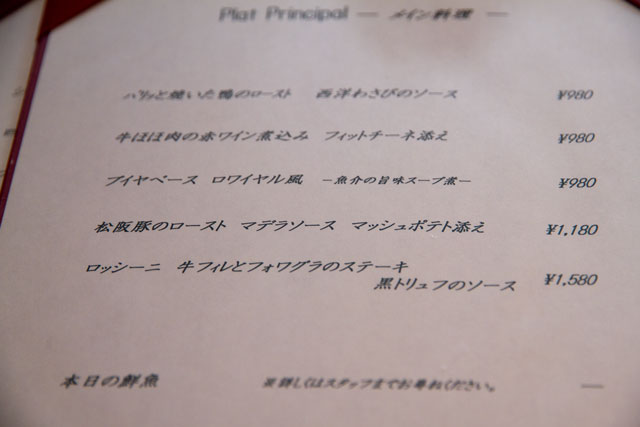 Plat Principal — メイン料理 —
パリッと焼いた鴨のロースト 西洋わさびのソース ¥980
牛ほほ肉の赤ワイン煮込み フィットチーネ添え ¥980
ブイヤベース ロワイヤル風 －魚介の旨味スープ煮－ ¥980
松阪豚のロースト マデラソース マッシュポテト添え ¥1,180
ロッシーニ 牛フィレとフォワグラのステーキ
黒トリュフのソース ¥1,580
本日の鮮魚 ※詳しくはスタッフまでお尋ねください。 —